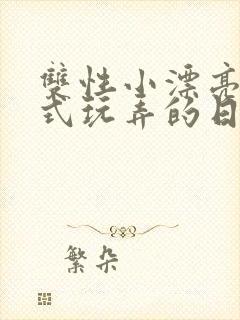 雙性小漂亮
式玩弄的日
繁朵